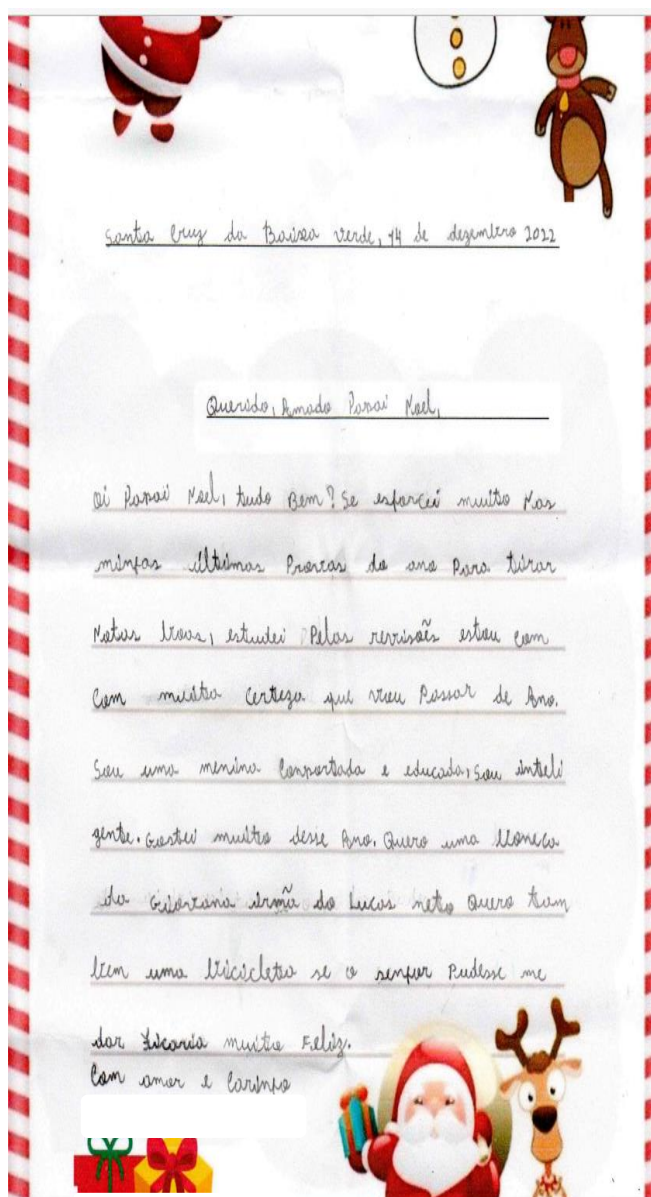 Santa Cruz da Baixa Verde, 14 de dezembro 2022
Querido, Amado Papai Noel,
Oi Papai Noel, tudo Bem? Se esforcei muito Nas
minhas últimas Provas do ano Para tirar
Notas boas, estudei Pelas revisões estou com
Com muita Certeza que vou Passar de Ano.
Sou uma menina Conportada e educada, sou inteli
gente. Gostei muito desse Ano. Quero uma boneca
da Giovana irmã do Lucas neto Quero tam
bem uma bicicleta se o senhor Pudesse me
dar Ficaria muito Feliz.
Com amor e Carinho